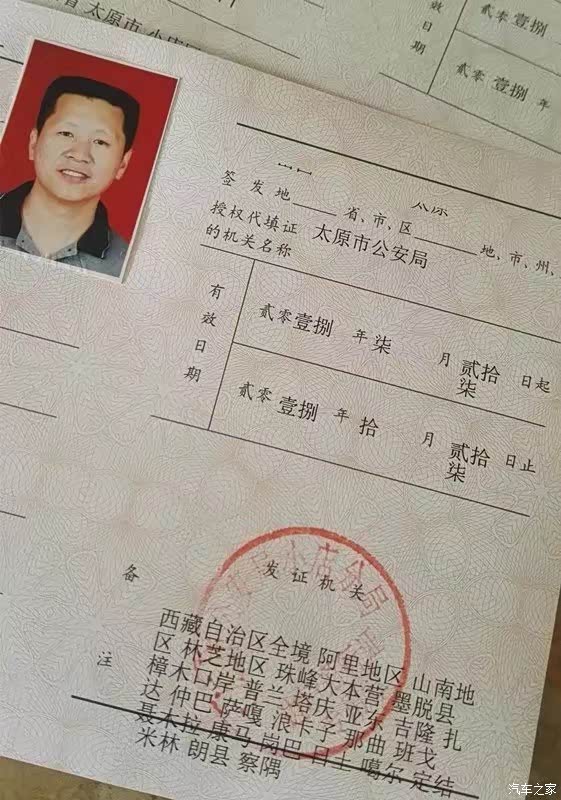 省 太原市 小店
有效日期
贰零 壹捌
贰零 壹捌 年
签发地 省、市、区 太原 地、市、州、
授权代填证的机关名称 太原市公安局
有效日期
贰零壹捌 年 柒 月 贰拾柒 日起
贰零壹捌 年 拾 月 贰拾柒 日止
发证机关
小店分局
备注
西藏自治区全境 阿里地区 山南地
区 林芝地区 珠峰大本营 墨脱县
樟木口岸 普兰 塔庆 亚东 吉隆 扎
达 仲巴 萨嘎 浪卡子 那曲 班戈
聂木拉 康马 岗巴 日土 噶尔 定结
米林 朗县 察隅
汽车之家